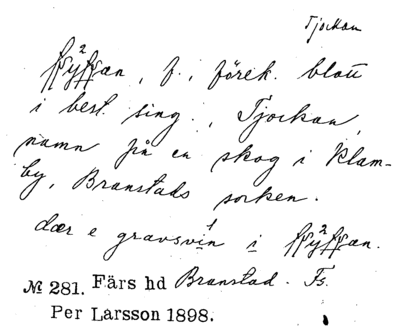 Tjockan
f., förek. blott
i best. sing., Tjockan,
namn på en skog i Klam-
by, Branstads socken.
dær e gravsvin i
№ 281. Färs hd Branstad. Fs.
Per Larsson 1898.